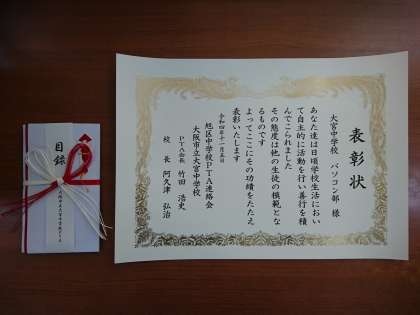 表彰状
大宮中学校 パソコン部 様
あなた達は日頃学校生活におい
て自主的に活動を行い善行を積
んでこられました
その態度は他の生徒の模範とな
るものです
よってここにその功績をたたえ
表彰いたします
令和四年十一月五日
旭区中学校PTA連絡会
大阪市立大宮中学校
PTA会長 竹田 浩史
校長 阿久津 弘治
目録